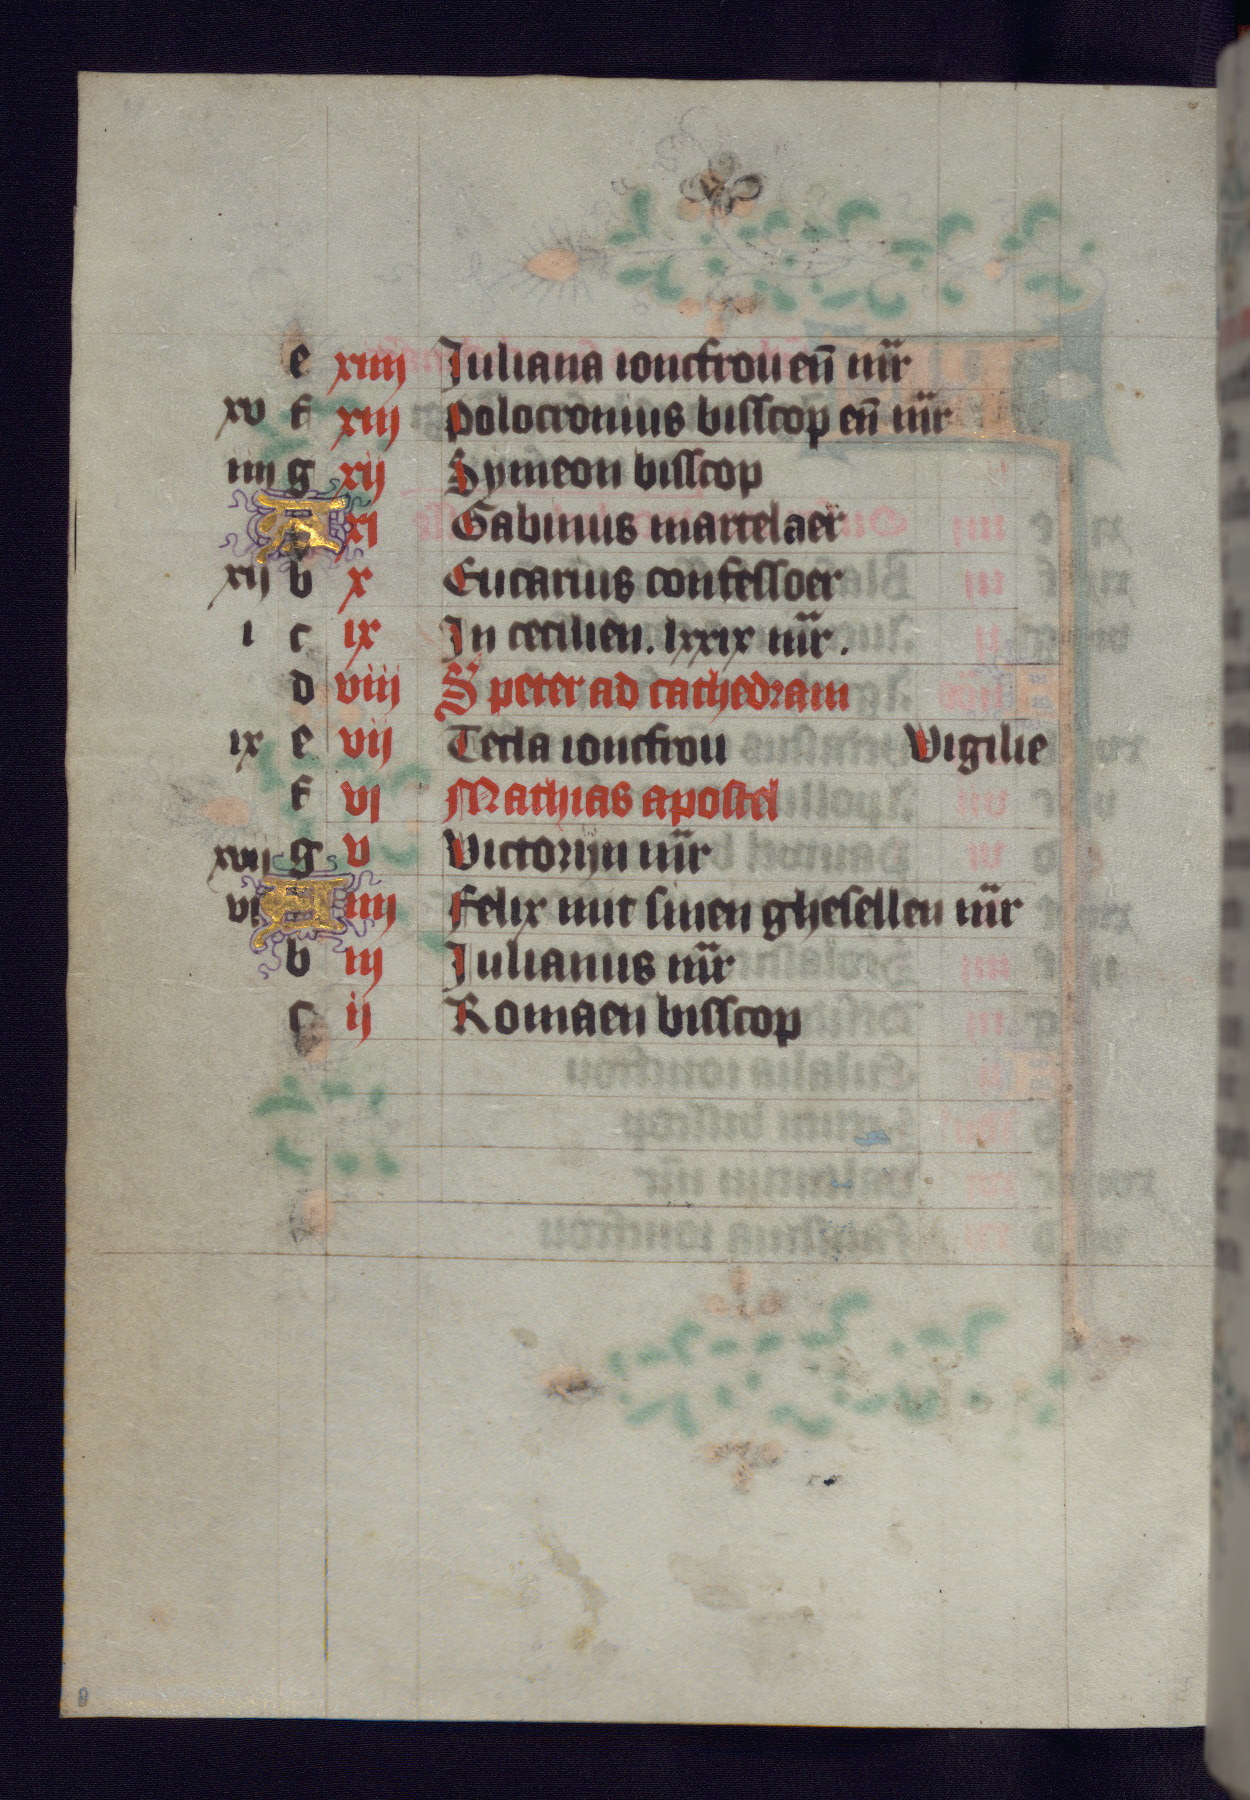 e xiiii Juliana ioncfrou en̄ mr̄
xv f xiii Polocronius bisscop en̄ mr̄
iiii g xii Symeon bisscop
A xi Gabinus martelaer
xii b x Eucarius confessoer
i c ix In cecilien. lxxix mr̄.
d viii S peter ad cathedram
ix e vii Tecla ioncfrou Vigilie
f vi Mathias apostel
xvii g v Victorijn mr̄
vi A iiii Felix mit sinen ghesellen mr̄
b iii Julianus mr̄
c ii Romaen bisscop
8